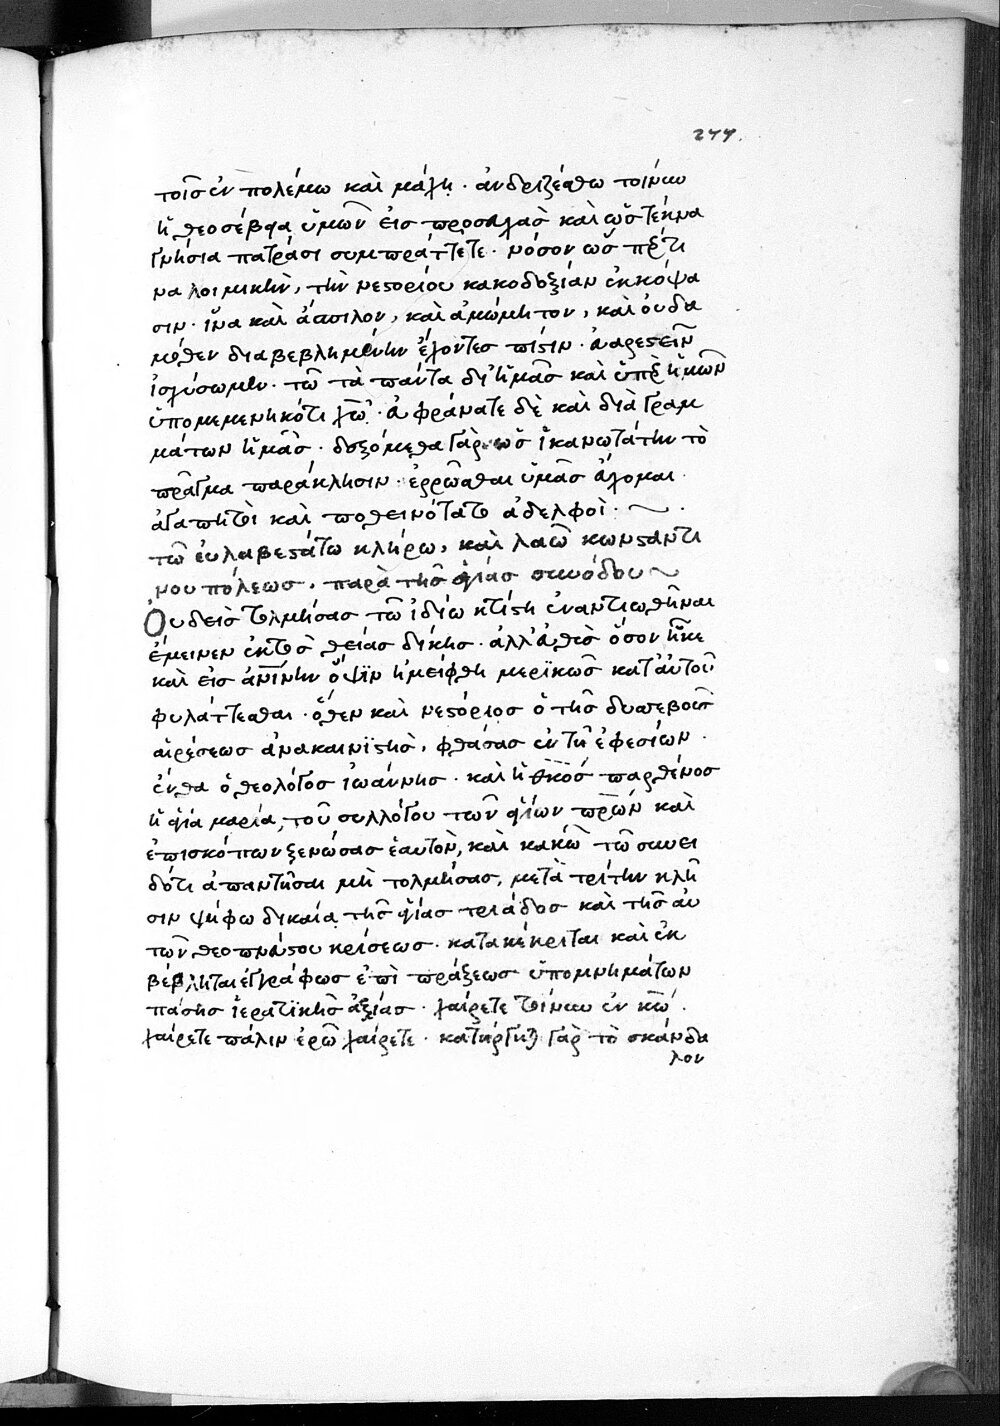 277.
τοῖς ἐν πολέμω καὶ μάχη · ἀνδριζέσθω τοίνυν
ἡ θεοσέβεια ὑμῶν εἰς προσευχὰς καὶ ὡς τέκνα
γνήσια πατράσι συμπράττετε · νόσον ὥσπερ τι
να λοιμικὴν, τὴν νεστορίου κακοδοξίαν ἐκκόψα
σιν · ἵνα καὶ ἄσπιλον, καὶ ἀμώμητον, καὶ οὐδα
μόθεν διαβεβλημένην ἔχοντες πίστιν · εὐαρεστεῖν
ἰσχύσωμεν · τῶ τὰ πάντα δι' ἡμᾶς καὶ ὑπὲρ ἡμῶν
ὑπομεμενηκότι χῶ · εὐφράνατε δὲ καὶ διὰ γραμ
μάτων ἡμᾶς · δεξόμεθα γὰρ ὡς ἱκανωτάτην τὸ
πρᾶγμα παράκλησιν · ἐρρῶσθαι ὑμᾶς εὔχομαι
ἀγαπητοὶ καὶ ποθεινότατοι ἀδελφοὶ : ~ ·
τῶ εὐλαβεστάτω κλήρω, καὶ λαῶ κωνσταντι
νουπόλεως, παρὰ τῆς ἁγίας συνόδου ~
Οὐδεὶς τολμήσας τῶ ἰδίω κτίστη ἐναντιωθῆναι
ἔμεινεν ἐκτὸς θείας δίκης · ἀλλ' εὐθὺς ὅσον ἧκε
καὶ εἰς ἀνίνην ὄψϊν ἠμείφθη μερϊκῶς κατ' αὐτοῦ
φυλάττεσθαι · ὅθεν καὶ νεστόριος ὁ τῆς δυσσεβοῦς
αἱρέσεως ἀνακαινϊστὴς, φθάσας ἐν τῆ ἐφεσίων ·
ἔνθα ὁ θεολόγος ἰωάννης · καὶ ἡ θκος παρθένος
ἡ ἁγία μαρία, τοῦ συλλόγου τῶν ἁγίων πρων καὶ
ἐπισκόπων ξενώσας ἑαυτὸν, καὶ κακῶ τῶ συνει
δότι ἀπαντῆσαι μὴ τολμήσας, μετὰ τρίτην κλῆ
σιν ψήφω δικαία τῆς ἁγίας τριάδος καὶ τῆς αὐ
τῶν θεοπνεύστου κρίσεως · κατακέκριται καὶ ἐκ
βέβληται ἐγγράφως ἐπὶ πράξεως ὑπομνημάτων
πάσης ἱερατϊκῆς ἀξίας · χαίρετε τοίνυν ἐν κω ·
χαίρετε πάλιν ἐρῶ χαίρετε · κατήργηται γὰρ τὸ σκάνδα
λον